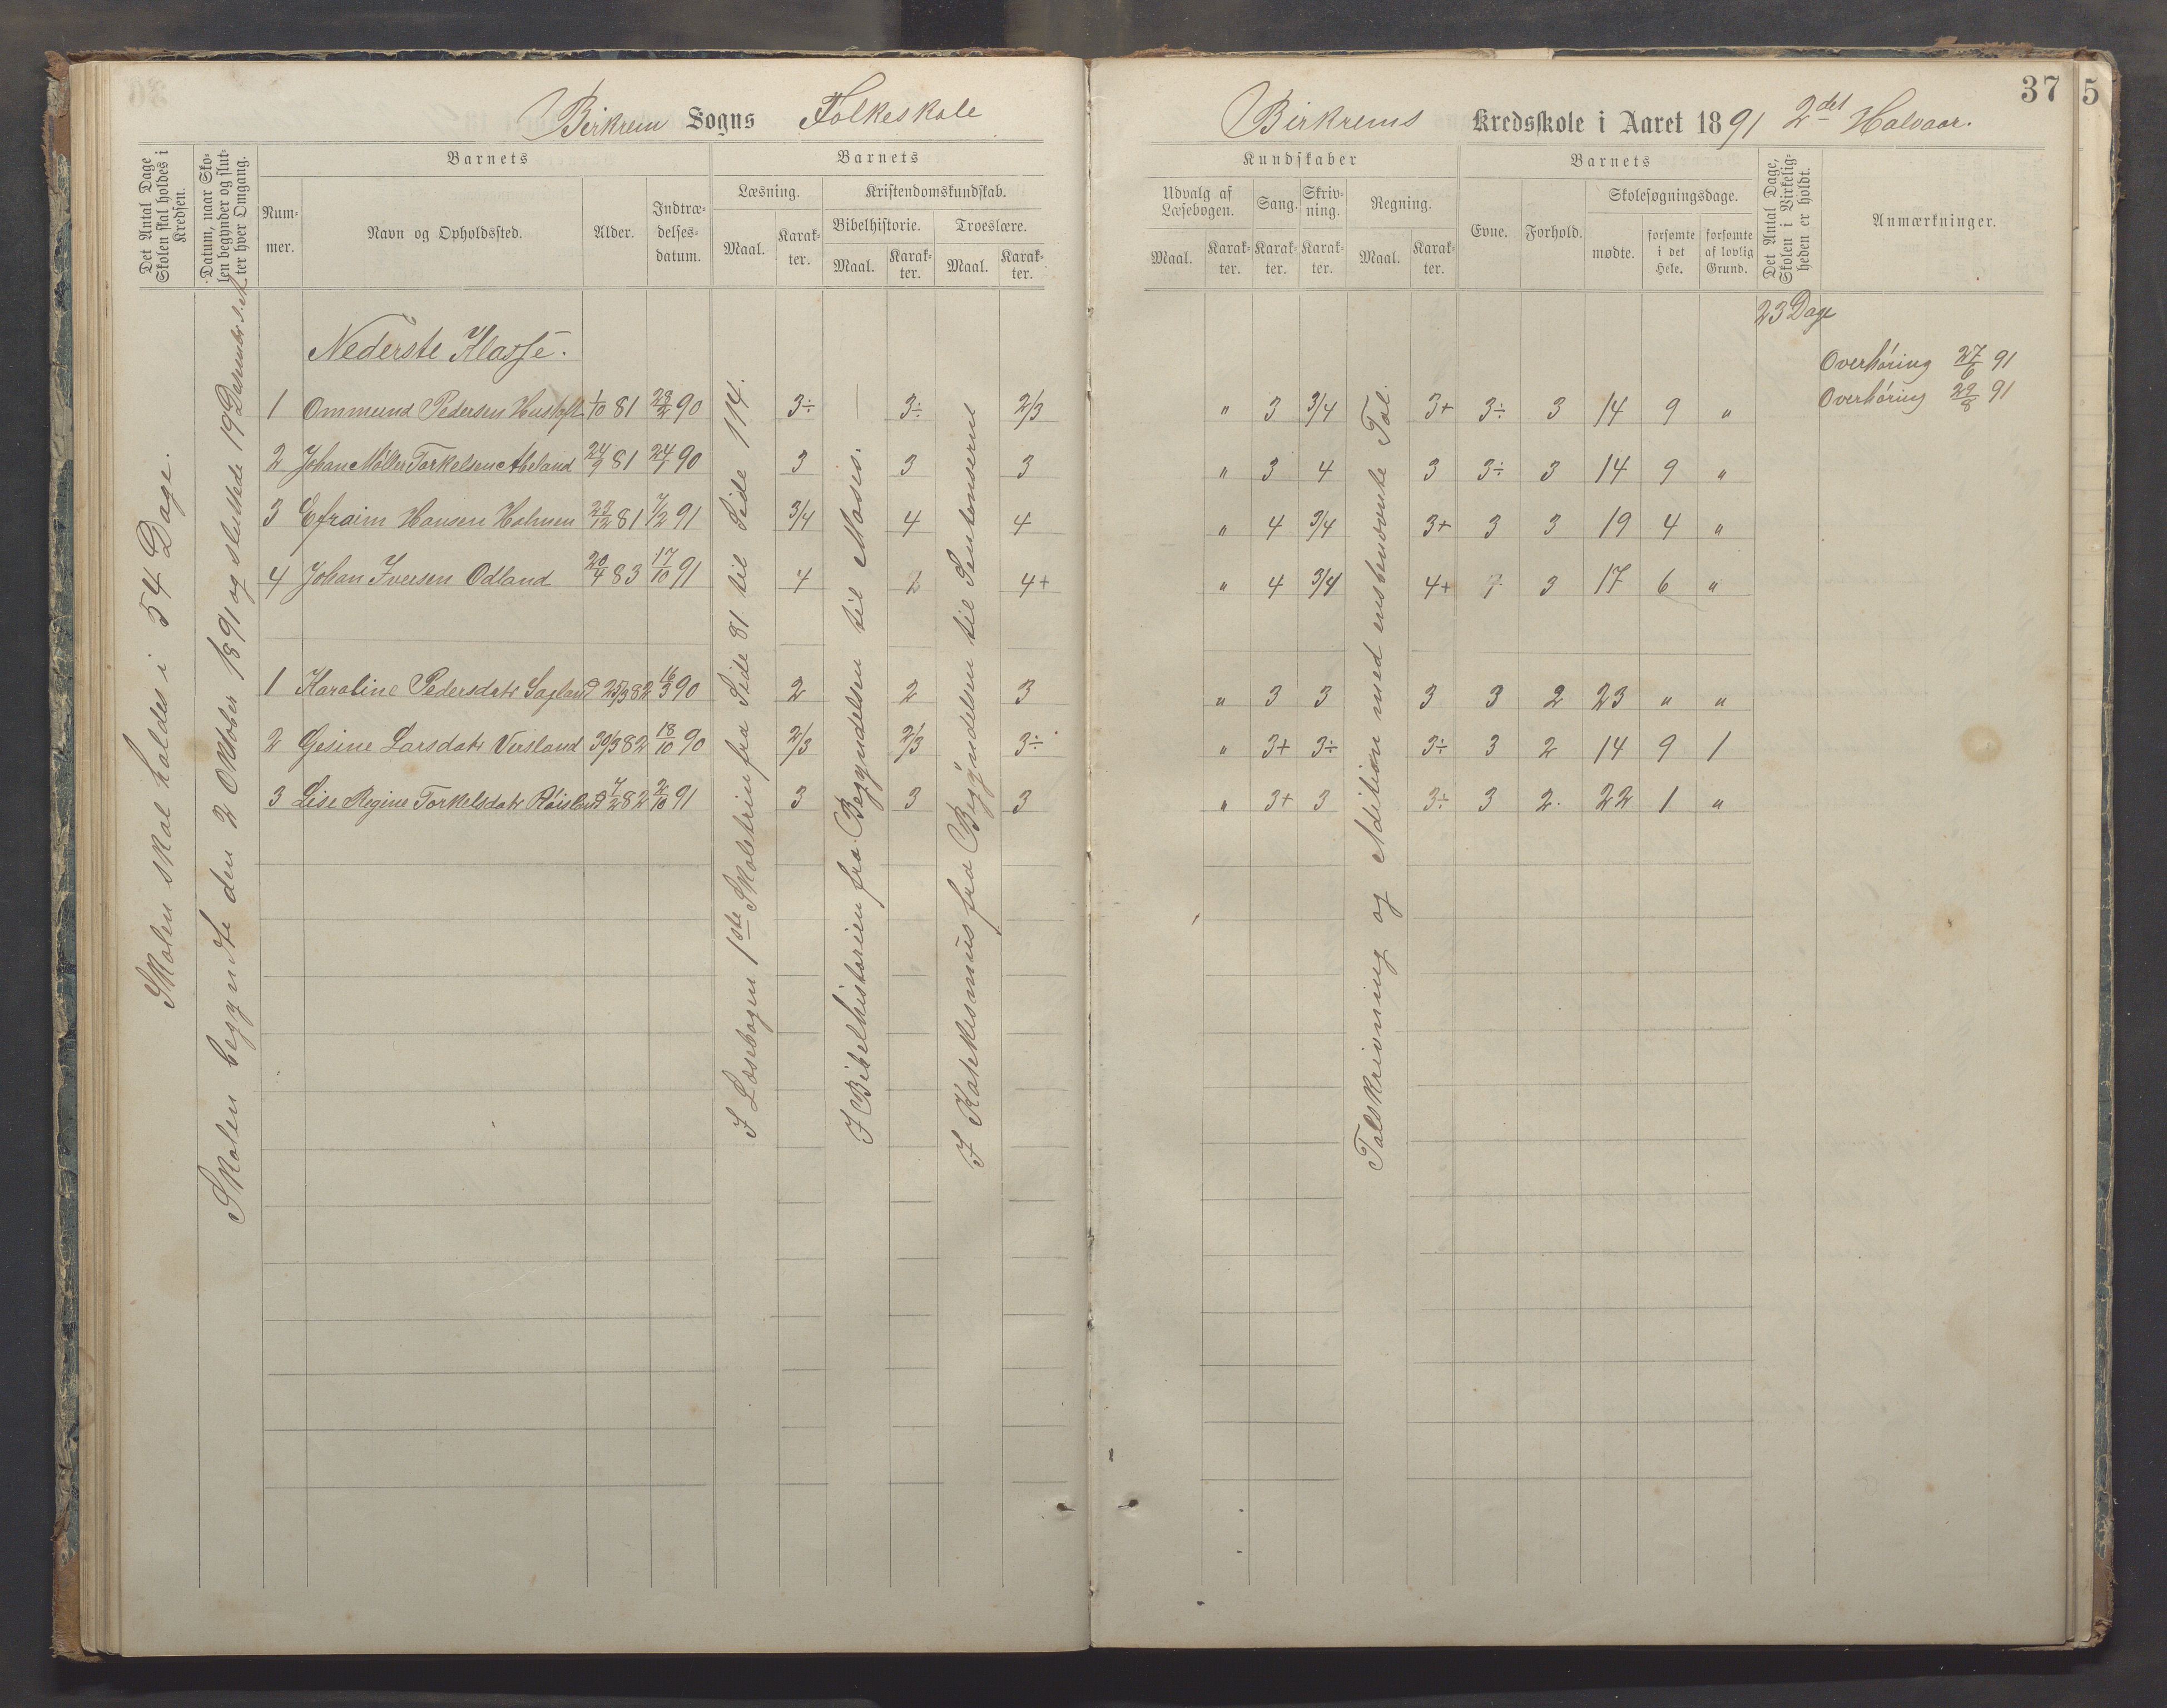 Birkrem Sogns Folkeskole
Det Antal Dage Skolen skal holdes i Kredsen.
Datum, naar Skolen begynder og slutter hver Omgang.
Barnets
Nummer.
Navn og Opholdssted.
Alder.
Indtrædelsesdatum.
Barnets
Læsning.
Kristendomskundskab.
Maal.
Karakter.
Bibelhistorie.
Troeslære.
Maal.
Karakter.
Maal.
Karakter.
Skolen skal holdes i 54 Dage.
Skolen begyndte den 2 Oktober 1891 og sluttede 19 December s. A.
Nederste Klasse.
1 Ommund Pedersen 1/10 81 23/2 90 3÷ — 3÷ 2/3
2 Johan Møller Torkelsen Abeland 24/9 81 24/1 90 3 3 3
3 Efraim Hansen Holmen 28/12 81 7/2 91 3/4 4 4
4 Johan Iversen Odland 20/4 83 17/10 91 4 2 4+
1 Karoline Pedersdatr Sagland 25/3 82 16/3 90 2 2 3
2 Gesine Larsdatr Versland 30/3 82 18/10 90 2/3 2/3 3÷
3 Lise Regine Torkelsdatr 7/2 82 2/10 91 3 3 3
I Læsebogen 1ste Skoletrin fra Side 81 til Side 114.
I Bibelhistorien fra Begyndelsen til Moses.
I Katekismus fra Begyndelsen til
37
5
Birkrems Kredsskole i Aaret 1891 2det Halvaar.
Kundskaber
Udvalg af Læsebogen.
Sang.
Skrivning.
Regning.
Maal.
Karakter.
Karakter.
Karakter.
Maal.
Karakter.
Barnets
Evne.
Forhold.
Skolesøgningsdage.
mødte.
forsømte i det Hele.
forsømte af lovlig Grund.
Det Antal Dage, Skolen i Virkeligheden er holdt.
Anmærkninger.
23 Dage
Overhøring 27/6 91
Overhøring 29/8 91
" 3 3/4 3+ 3÷ 3 14 9 "
" 3 4 3 3÷ 3 14 9 "
" 4 3/4 3+ 3 3 19 4 "
" 4 3/4 4+ 3 17 6 "
" 3 3 3 3 2 23 " "
" 3+ 3÷ 3÷ 3 2 14 9 1
" 3+ 3 3÷ 3 2. 22 1 "
Talskrivning og Adition med ensbenævnte Tal.